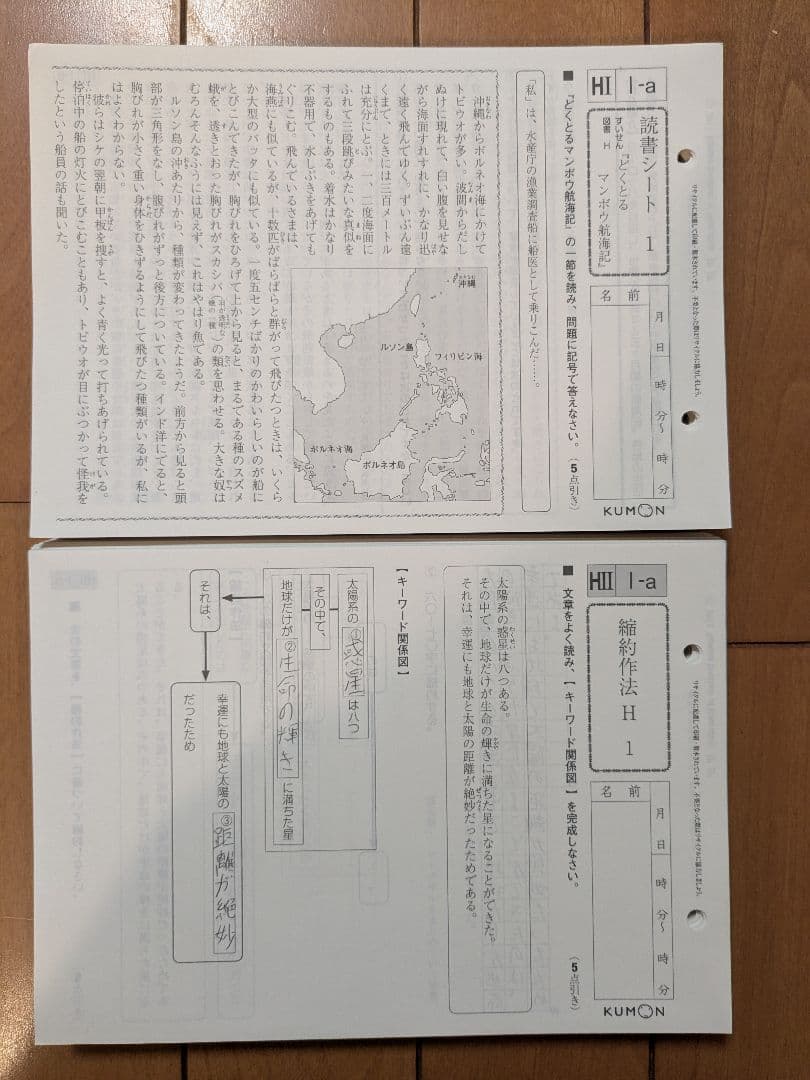 HI 1-a
読書シート 1
すいせん図書 H
『どくとるマンボウ航海記』
名前
月 日
時 分〜 時 分
KUMON
■『どくとるマンボウ航海記』の一節を読み、問題に記号で答えなさい。(5点引き)
「私」は、水産庁の漁業調査船に船医として乗りこんだ……。
沖縄からボルネオ海にかけて
トビウオが多い。波間からだし
ぬけに現れて、白い腹を見せな
がら海面すれすれに、かなり迅
く遠く飛んでゆく。ずいぶん遠
くまで、ときには三百メートル
は充分にとぶ。一、二度海面に
ふれて三段跳びみたいな真似を
するものもある。着水はかなり
不器用で、水しぶきをあげても
ぐりこむ。飛んでいるさまは、
海燕にも似ているが、十数匹がばらばらと群がって飛びたつときは、いくら
か大型のバッタにも似ている。一度五センチばかりのかわいらしいのが船に
とびこんできたが、胸びれをひろげて上から見ると、まるである種のスズメ
蛾を、透きとおった胸びれがスカシバ(羽が透明な蛾の一種)の類を思わせる。大きな奴は
むろんそんなふうには見えず、これはやはり魚である。
ルソン島の沖あたりから、種類が変わってきたようだ。前方から見ると頭
部が三角形をなし、腹びれがずっと後方についている。インド洋にでると、
胸びれが小さく重い身体をひきずるようにして飛びたつ種類がいるが、私に
はよくわからない。
彼らはシケの翌朝に甲板を捜すと、よく青く光って打ちあげられている。
停泊中の船の灯火にとびこむこともあり、トビウオが目にぶつかって怪我を
したという船員の話も聞いた。
沖縄
ルソン島
フィリピン海
ボルネオ海
ボルネオ島
HII 1-a
縮約作法 H 1
名前
月 日
時 分〜 時 分
KUMON
■文章をよく読み、【キーワード関係図】を完成しなさい。(5点引き)
太陽系の惑星は八つある。
その中で、地球だけが生命の輝きに満ちた星になることができた。
それは、幸運にも地球と太陽の距離が絶妙だったためである。
【キーワード関係図】
太陽系の ①惑星 は八つ
その中で、
地球だけが ②生命の輝き に満ちた星
それは、
幸運にも地球と太陽の ③距離が絶妙
だったため